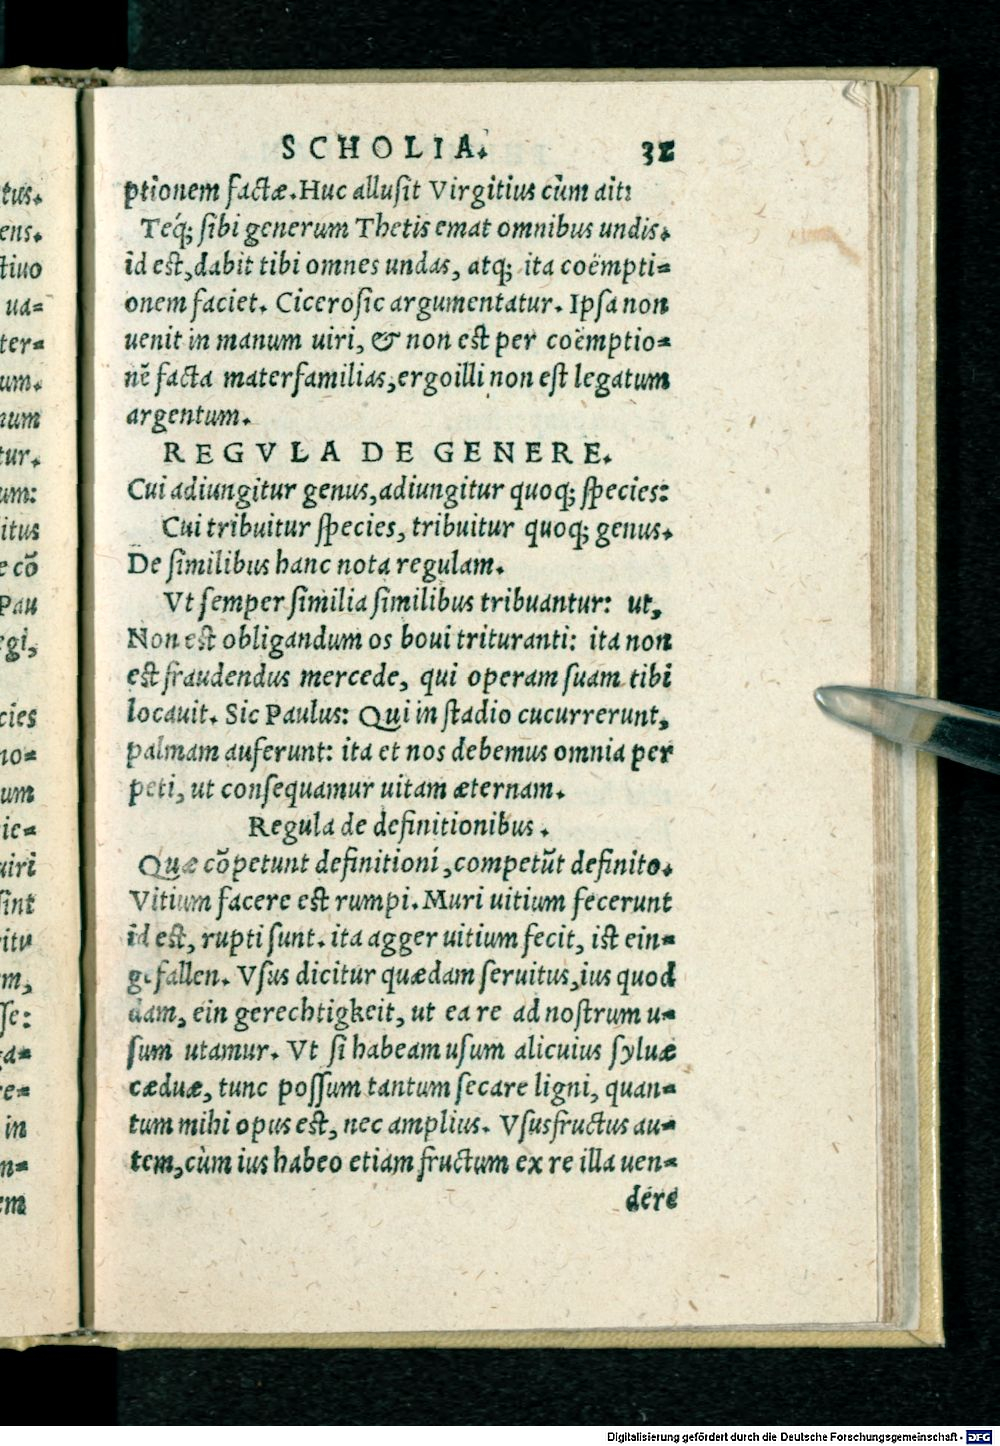 SCHOLIA. 31
ptionem factæ. Huc allusit Virgitius cùm ait:
Teq́; sibi generum Thetis emat omnibus undis.
id est, dabit tibi omnes undas, atq; ita coëmpti=
onem faciet. Cicero sic argumentatur. Ipsa non
uenit in manum uiri, & non est per coëmptio=
nē facta materfamilias, ergo illi non est legatum
argentum.
REGVLA DE GENERE.
Cui adiungitur genus, adiungitur quoq; species:
Cui tribuitur species, tribuitur quoq; genus.
De similibus hanc nota regulam.
Vt semper similia similibus tribuantur: ut,
Non est obligandum os boui trituranti: ita non
est fraudendus mercede, qui operam suam tibi
locauit. Sic Paulus: Qui in stadio cucurrerunt,
palmam auferunt: ita et nos debemus omnia per
peti, ut consequamur uitam æternam.
Regula de definitionibus.
Quæ cōpetunt definitioni, competūt definito.
Vitium facere est rumpi. Muri uitium fecerunt
id est, rupti sunt. ita agger uitium fecit, ist ein=
gefallen. Vsus dicitur quædam seruitus, ius quod
dam, ein gerechtigkeit, ut ea re ad nostrum u=
sum utamur. Vt si habeam usum alicuius syluæ
cæduæ, tunc possum tantum secare ligni, quan=
tum mihi opus est, nec amplius. Vsusfructus au=
tem, cùm ius habeo etiam fructum ex re illa uen=
dere
tus.
ens.
tiuo
ua=
ter=
um.
num
tur.
um:
itus
e cō
Pau
egi,
cies
no=
um
ie=
uiri
sint
itu
m,
sse:
ga=
re=
in
n=
em
Digitalisierung gefördert durch die Deutsche Forschungsgemeinschaft - DFG